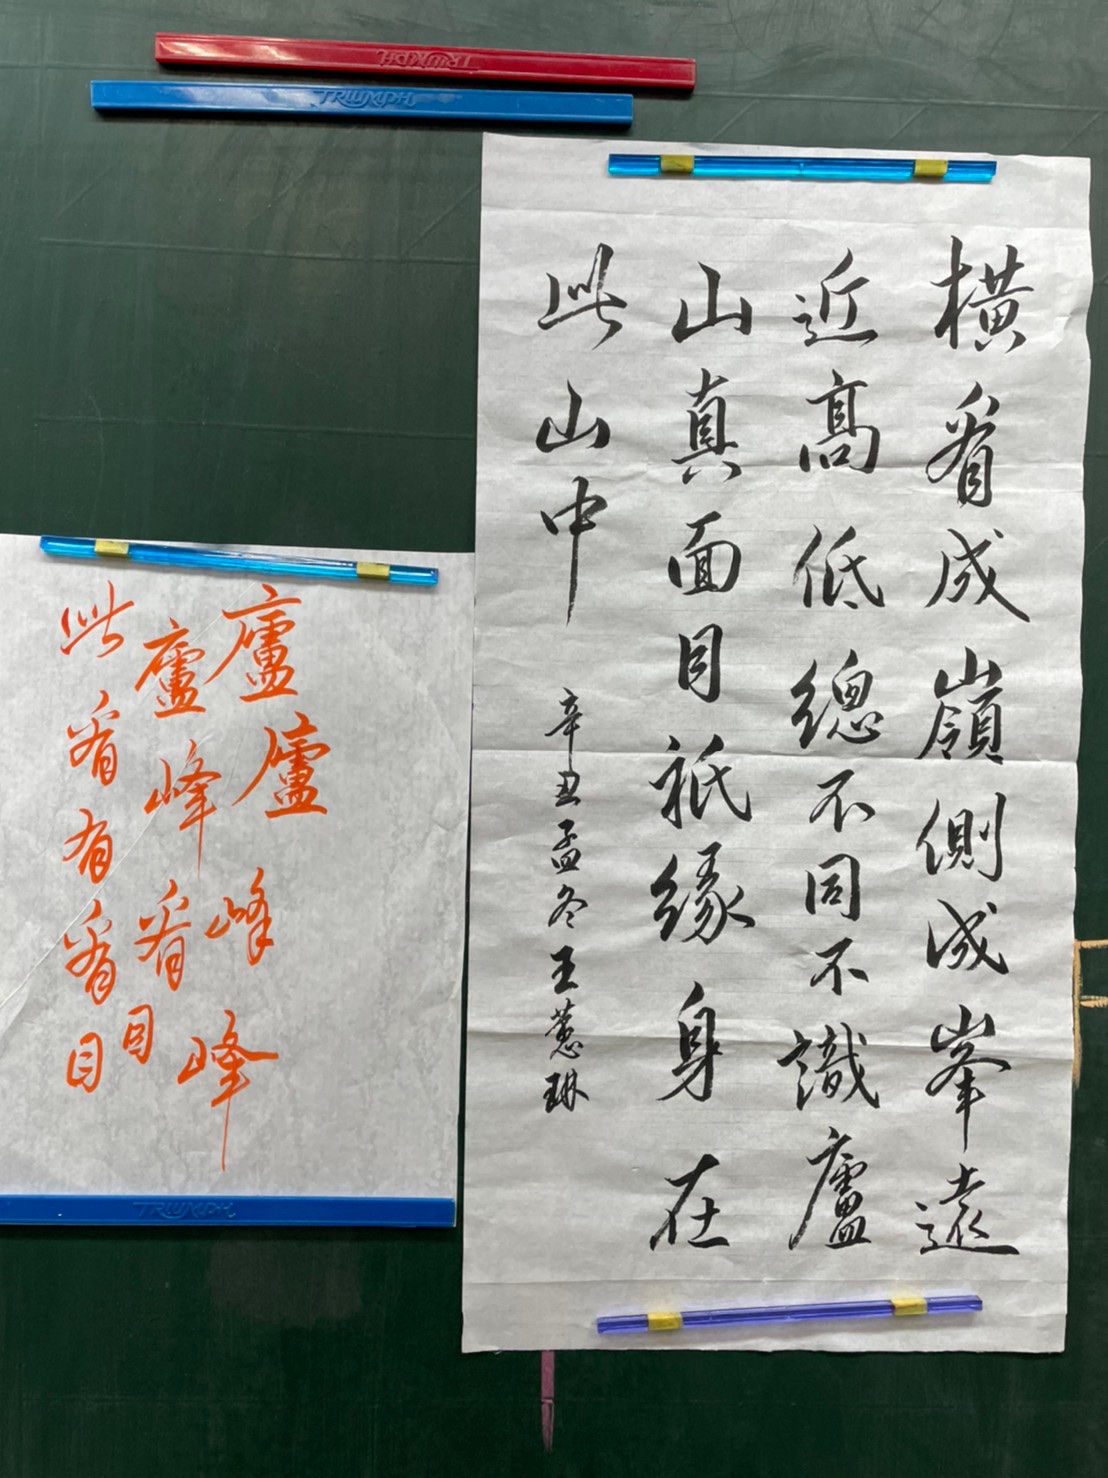 TRIUMPH
TRIUMPH
橫看成嶺側成峯遠
近髙低總不同不識廬
山真面目祇緣身在
此山中
辛丑孟冬王蕙琳
廬廬峰峰
廬峰看目
此看有看目
TRIUMPH